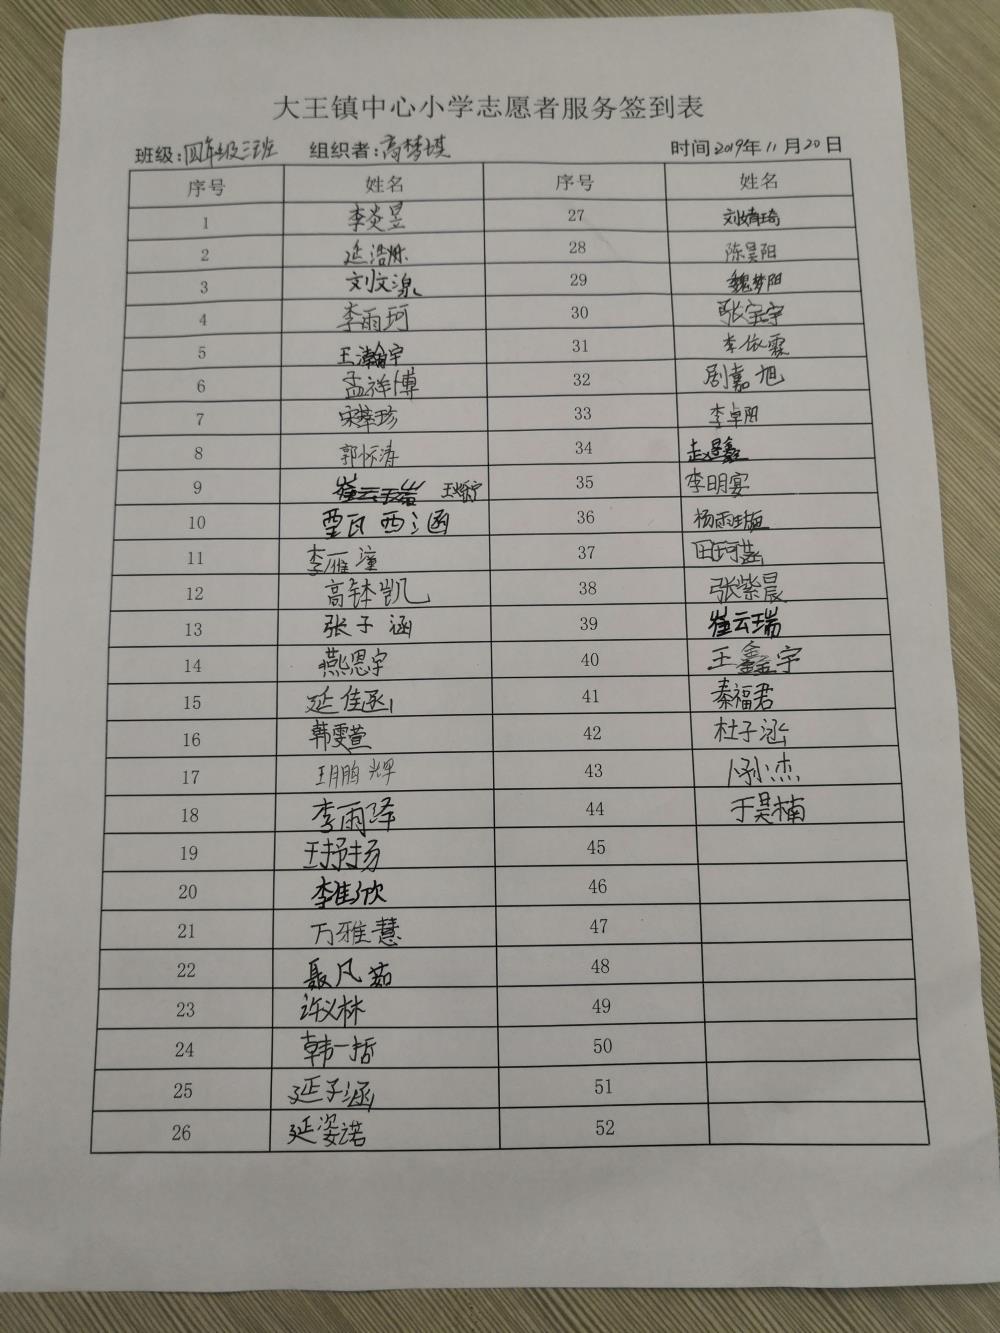 大王镇中心小学志愿者服务签到表
班级:四年级三班 组织者:高梦琪 时间2019年11月20日
序号 姓名 序号 姓名
1 李炎昱 27 刘婧琦
2 延浩烁 28 陈昊阳
3 刘文湶 29 魏梦阳
4 李雨珂 30 张宝宇
5 王瀚宇 31 李依霖
6 孟祥博 32 剧嘉旭
7 宋梓珍 33 李卓阳
8 郭怀涛 34 赵鑫
9 王烁宁 35 李明宴
10 贾西涵 36 杨雨璇
11 李雁潼 37 田珂菡
12 高钵凯 38 张紫晨
13 张子涵 39 崔云瑞
14 燕恩宇 40 王鑫宇
15 延佳函 41 秦福君
16 韩雯萱 42 杜子涵
17 王鹏辉 43 小杰
18 李雨泽 44 于昊楠
19 王抒扬 45
20 李佳欣 46
21 万雅慧 47
22 聂凡茹 48
23 许义林 49
24 韩一哲 50
25 延子涵 51
26 延姿诺 52